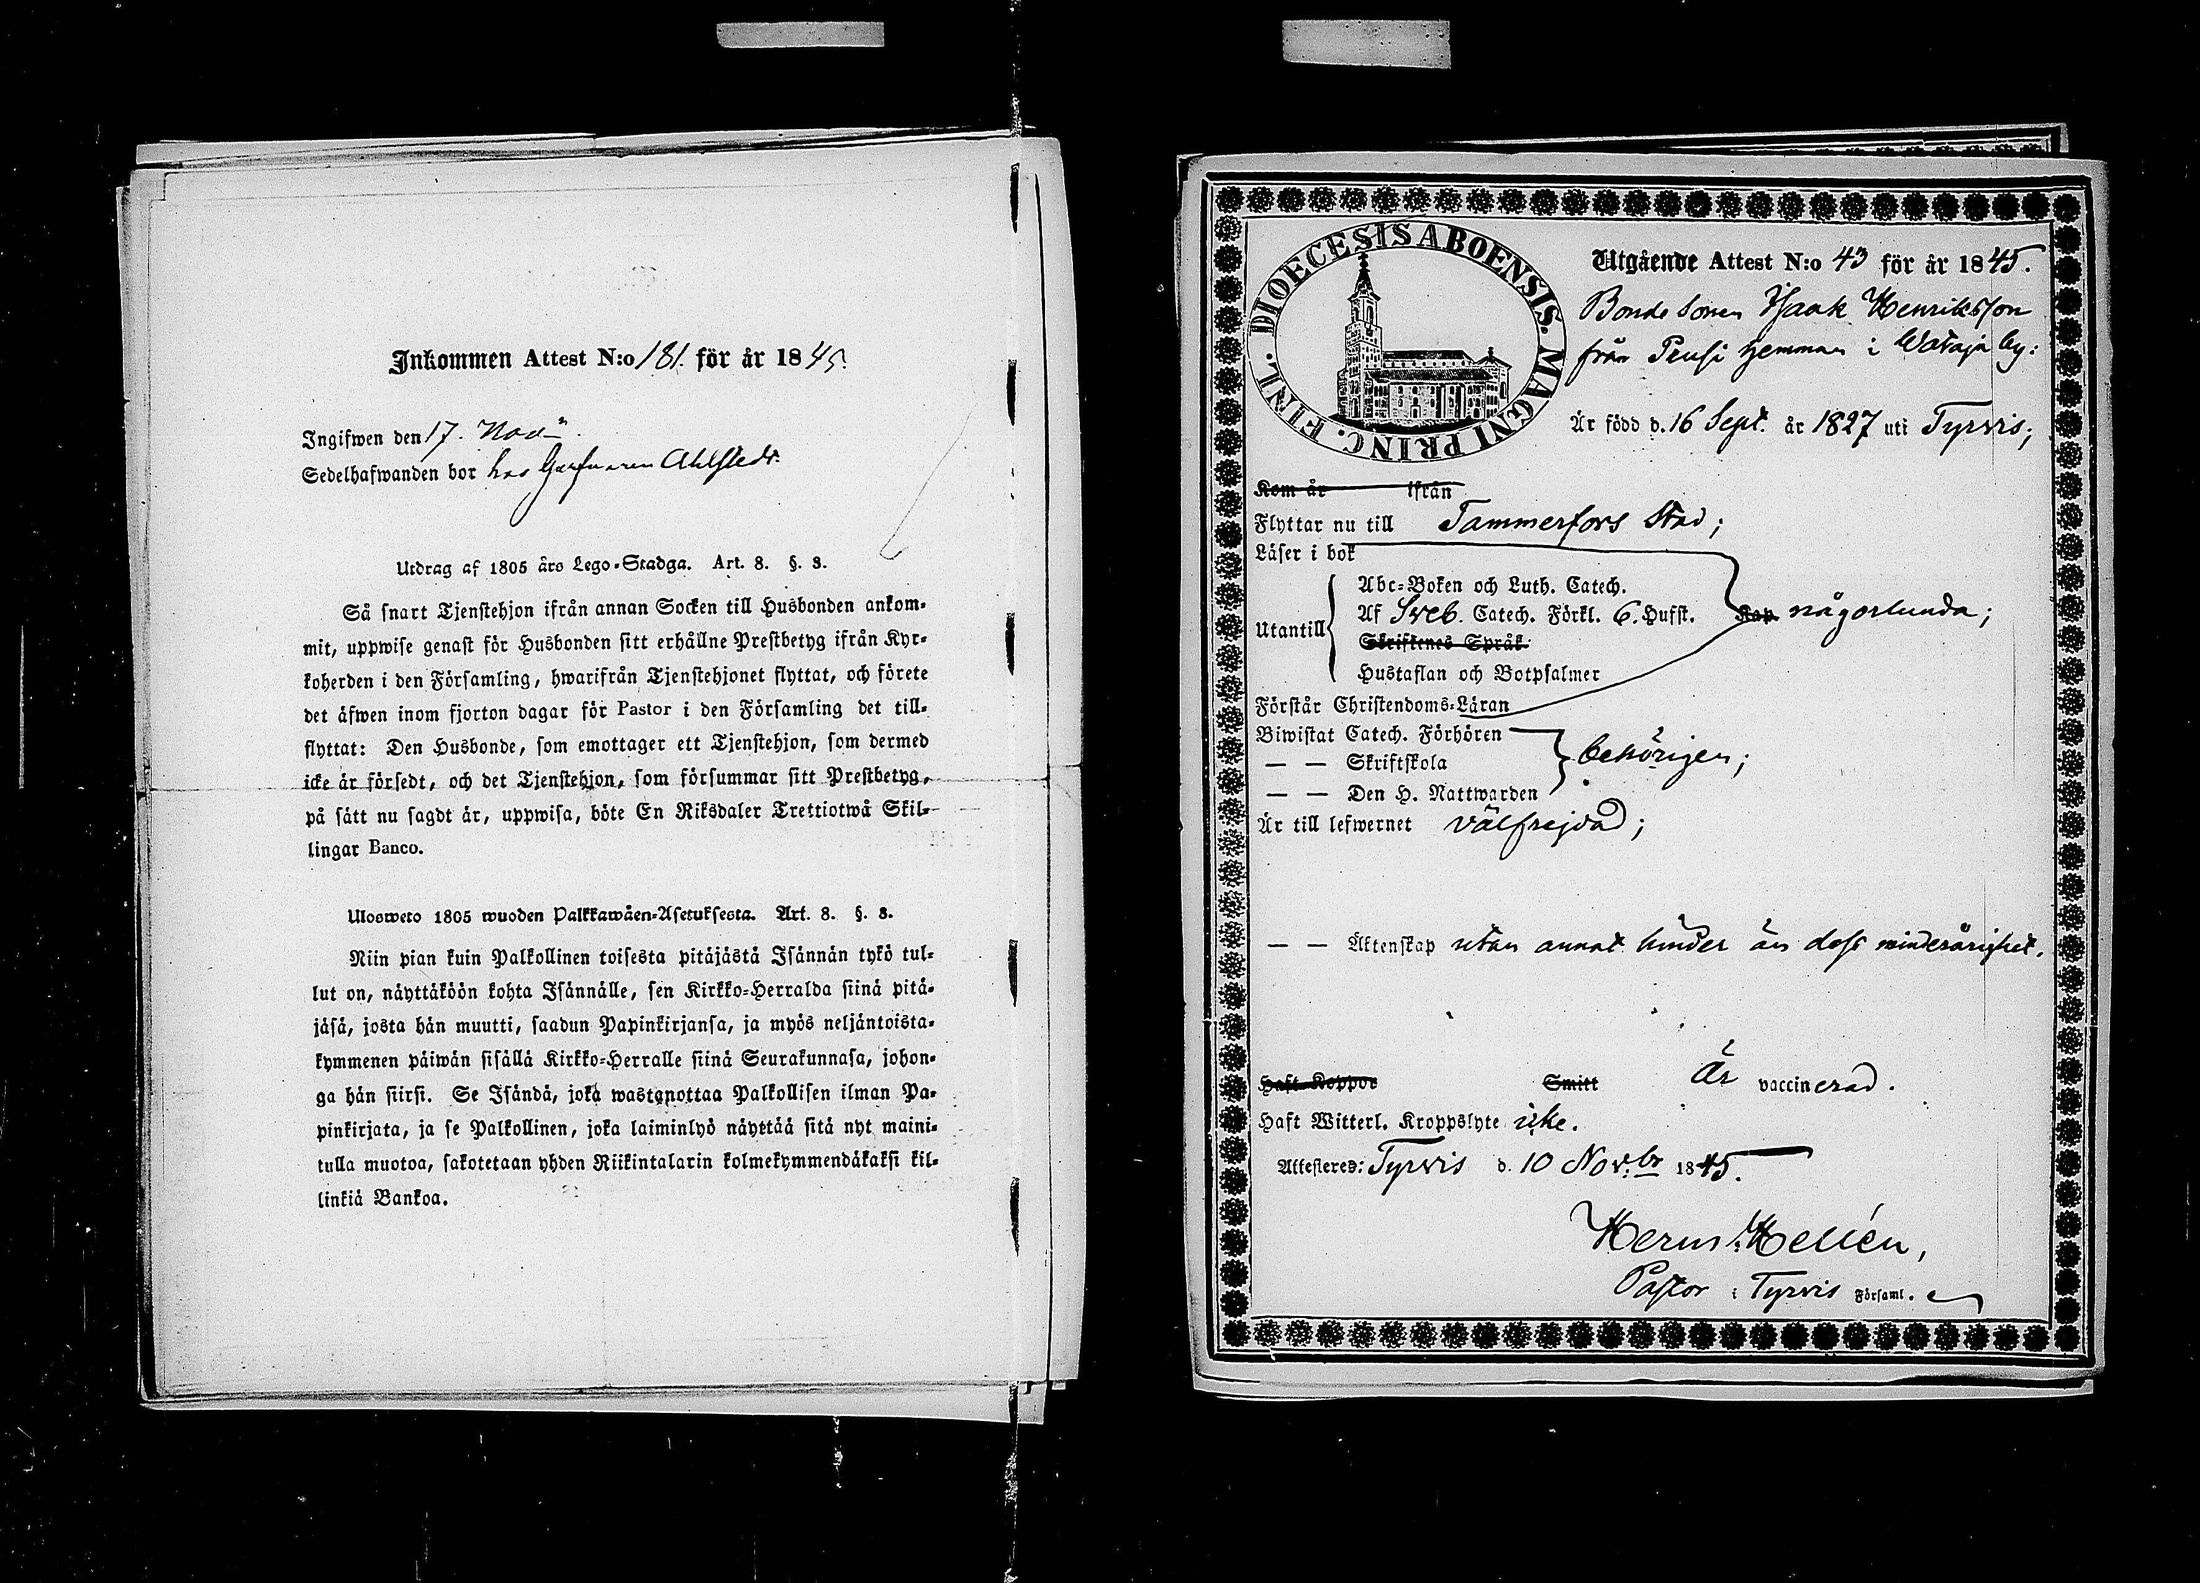 Inkommen Attest N:o 181. för år 1845.
Ingifwen den 17. Nov.
Sedelhafwanden bor hos Garfvaren Ahlstedt.
Utdrag af 1805 års Lego-Stadga. Art. 8. §. 3.
Så snart Tjenstehjon ifrån annan Socken till Husbonden ankom-
mit, uppwise genast för Husbonden sitt erhållne Prestbetyg ifrån Kyr-
koherden i den Församling, hwarifrån Tjenstehjonet flyttat, och förete
det äfwen inom fjorton dagar för Pastor i den Församling det till-
flyttat: Den Husbonde, som emottager ett Tjenstehjon, som dermed
icke är försedt, och det Tjenstehjon, som försummar sitt Prestbetyg,
på sätt nu sagdt är, uppwisa, böte En Riksdaler Trettiotwå Skil-
lingar Banco.
Ulosweto 1805 wuoden Palkkawäen-Asetuksesta. Art. 8. §. 3.
Niin pian kuin Palkollinen toisesta pitäjästä Isännän tykö tul-
lut on, näyttäköön kohta Isännälle, sen Kirkko-Herralda siinä pitä-
jäsä, josta hän muutti, saadun Papinkirjansa, ja myös neljäntoista-
kymmenen päiwän sisällä Kirkko-Herralle siinä Seurakunnasa, johon-
ga hän siirsi. Se Isändä, joka wastanottaa Palkollisen ilman Pa-
pinkirjata, ja se Palkollinen, joka laiminlyö näyttää sitä nyt maini-
tulla muotoa, sakotetaan yhden Riikintalarin kolmekymmendäkaksi kil-
linkiä Bankoa.
DIOECESIS ABOENSIS. MAGNI PRINC. FINL.
Utgående Attest N:o 43 för år 1845.
Bondesonen Isaak Henriksson
från Peusi hemman i Wataja by:
Är född d. 16 Sept. år 1827 uti Tyrvis;
Kom år ifrån
Flyttar nu till Tammerfors Stad;
Läser i bok
Abc-Boken och Luth. Catech.
Utantill Af Sveb. Catech. Förkl. 6. Hufst. Kap någorlunda;
Skriftenes Språk
Hustaflan och Botpsalmer
Förstår Christendoms-Läran
Biwistat Catech. Förhören
— — Skriftskola behörigen;
— — Den H. Nattwarden
Är till lefwernet välfrejdad;
— — Äktenskap utan annat hinder än dess minderårighet.
Haft Koppor Smitt Är vaccinerad.
Haft Witterl. Kroppslyte icke.
Attesteres: Tyrvis d. 10 Nov:br 1845.
Herm. Hellén,
Pastor i Tyrvis Församl.